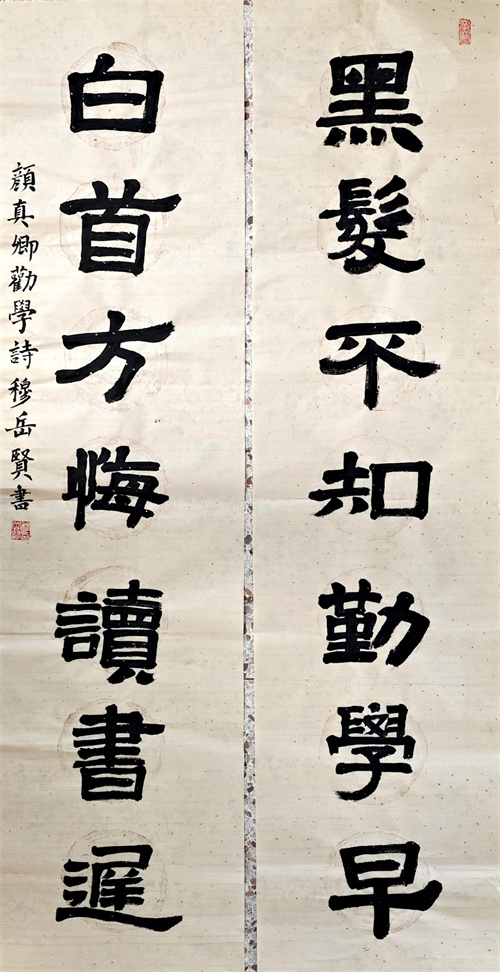 黑髮不知勤學早
白首方悔讀書遲
顔真卿勸學詩穆岳賢書